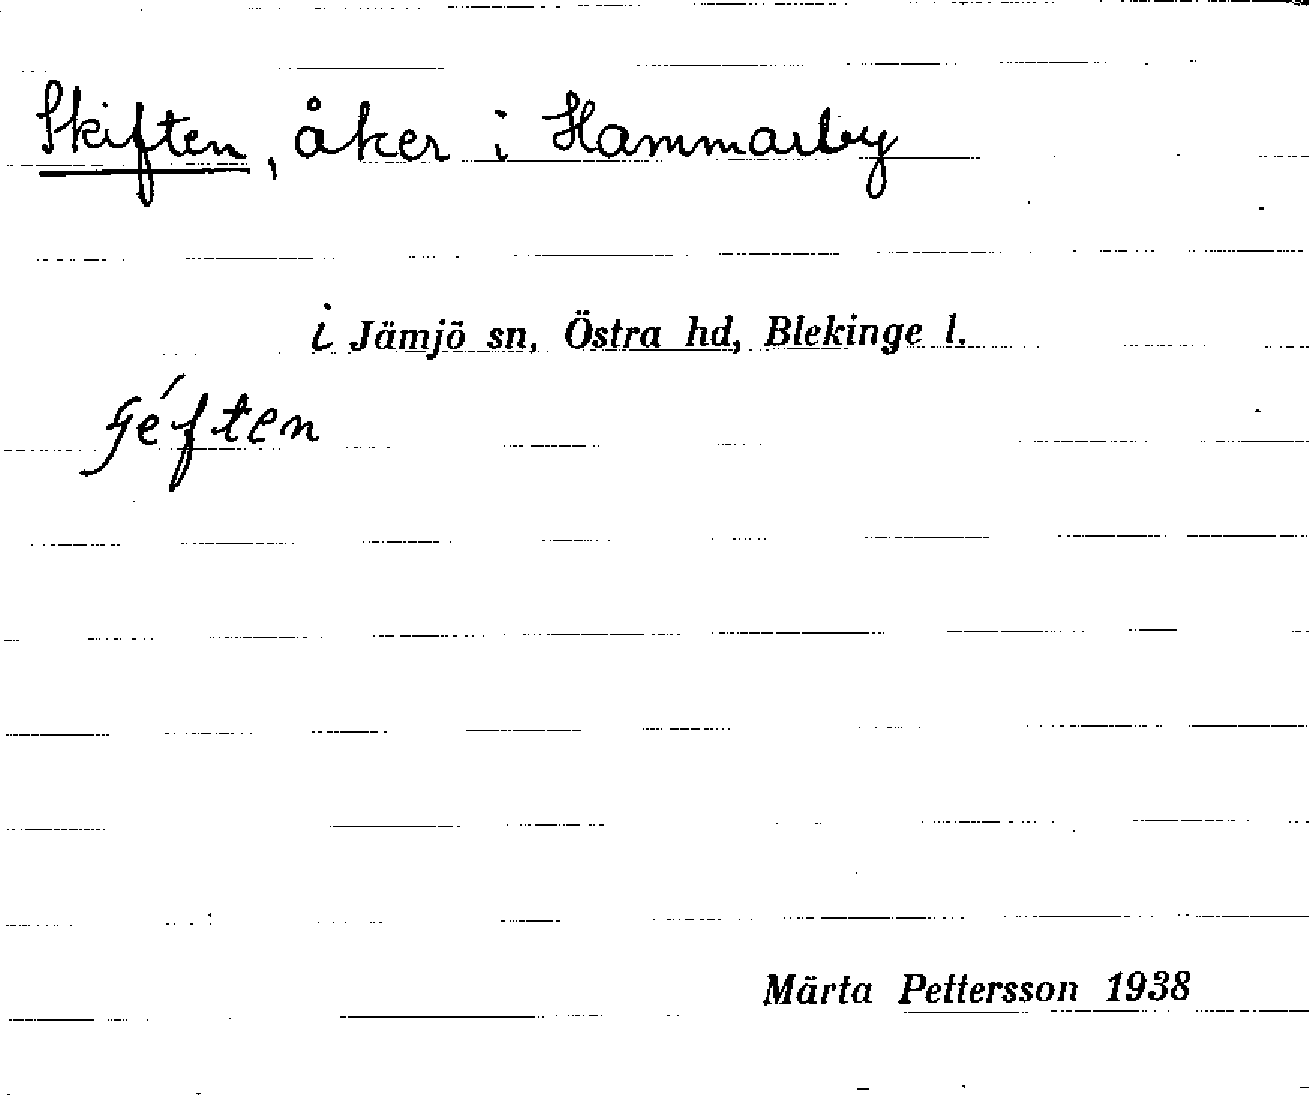 Skiften, åker i Hammarby
i Jämjö sn, Östra hd, Blekinge l.
ʃéften
Märta Pettersson 1938